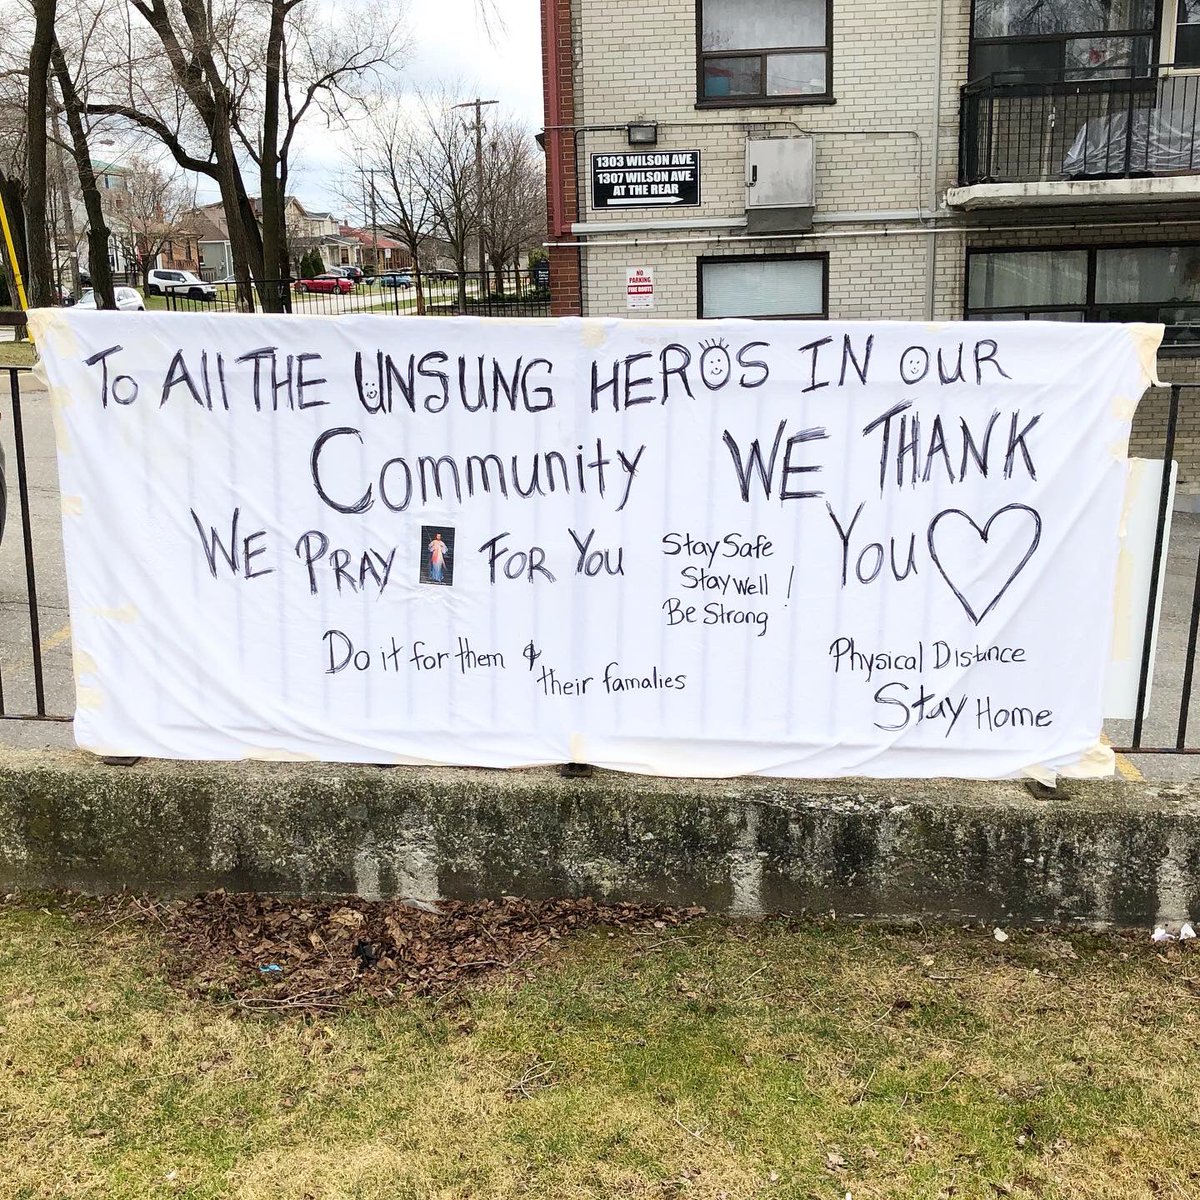 1303 WILSON AVE.
1307 WILSON AVE.
AT THE REAR
NO
PARKING
FIRE ROUTE
To All THE UNSUNG HEROS IN OUR
Community WE THANK
You
WE PRAY FOR YOU
Stay Safe
Stay Well !
Be Strong
Do it for them &
their famalies
Physical Distance
Stay Home